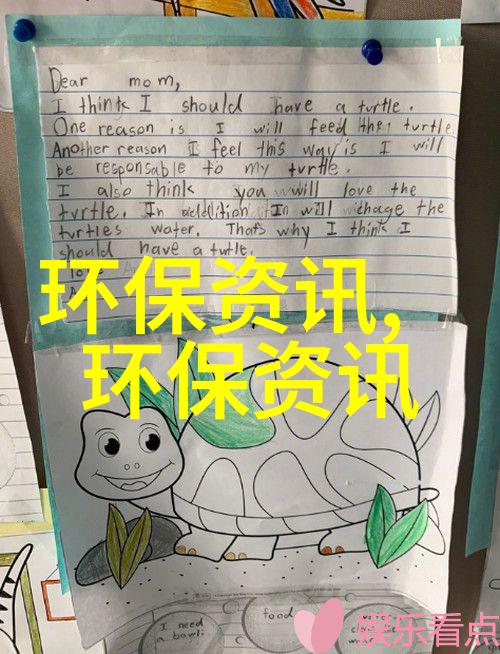 Dear mom,
I think I should have a turtle.
One reason is I will feed the turtle.
Another reason I feel this way is I will
be responsable to my turtle.
I also think you will love the
turtle. In addition I will change the
turtles water. Thats why I think I
should have a turtle.
love
环保资讯,
环保资讯
I need
a bowl:
food
娱乐看点